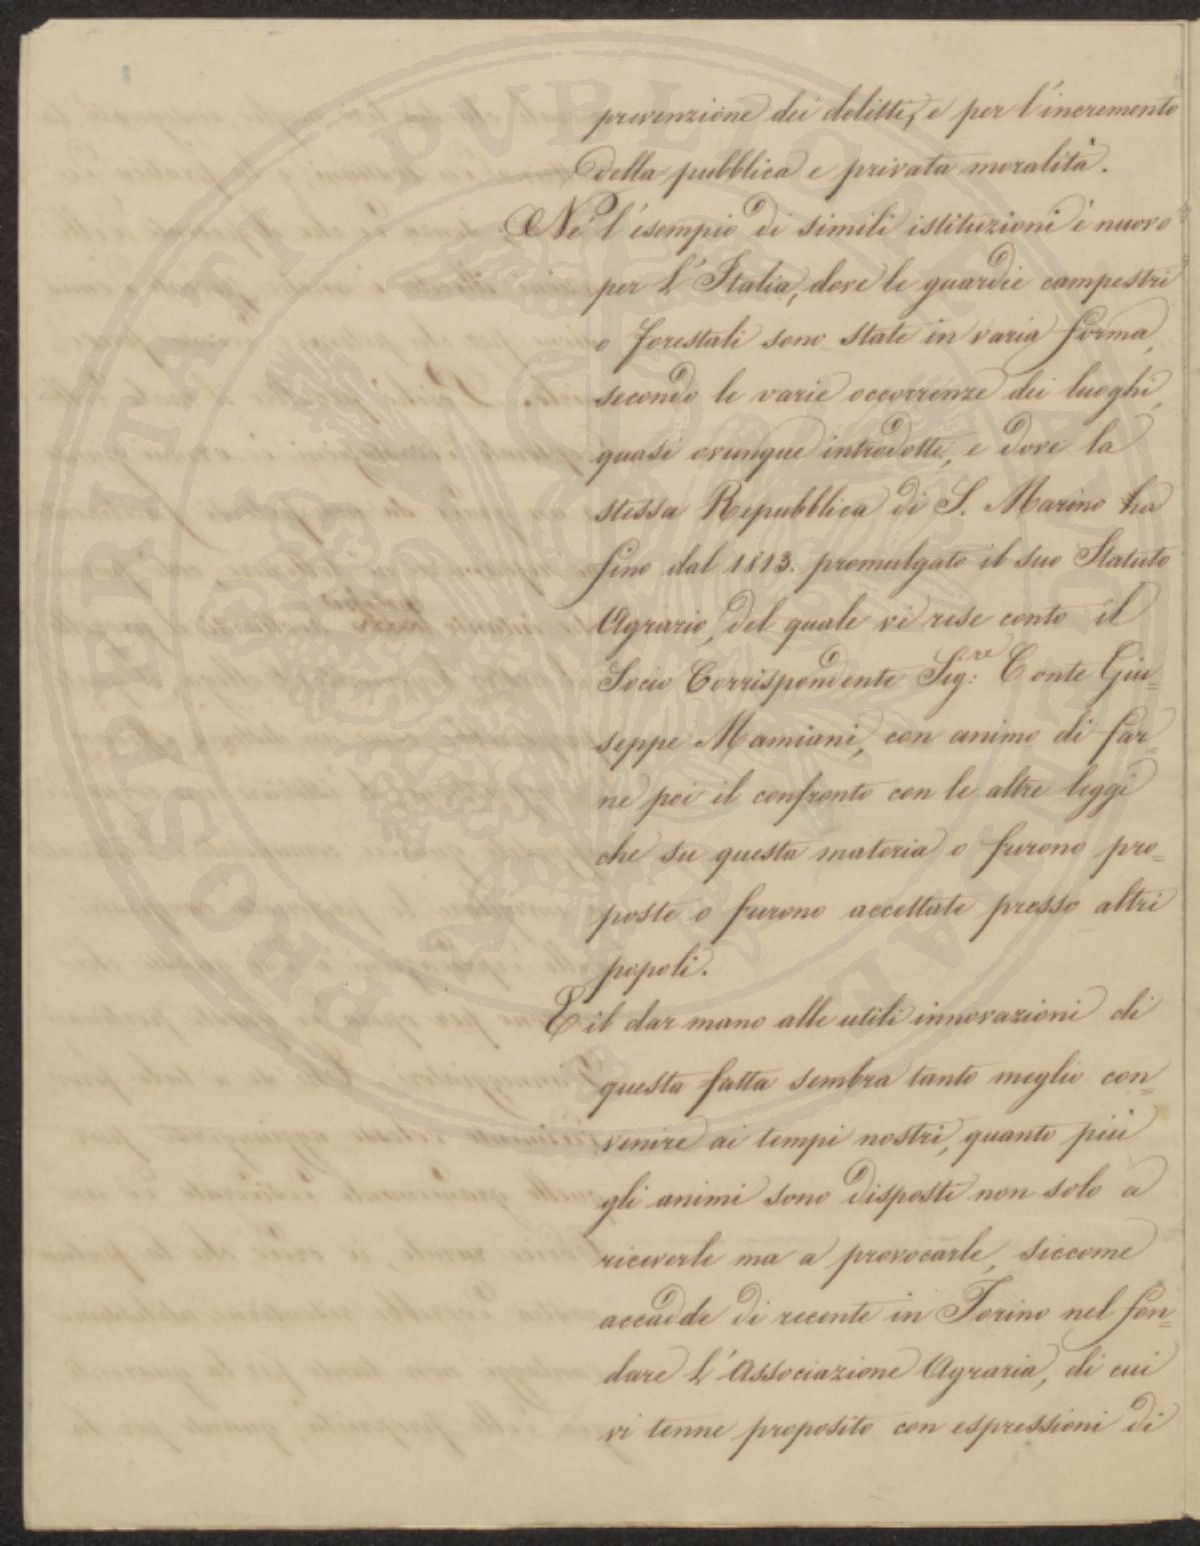 prevenzione dei delitti, e per l'incremento
della pubblica e privata moralità.
Nè l'esempio di simili istituzioni è nuovo
per l'Italia, dove le guardie campestri
o forestali sono state in varia forma,
secondo le varie occorrenze dei luoghi,
quasi ovunque introdotte, e dove la
stessa Repubblica di S. Marino ha
fino dal 1813. promulgato il suo Statuto
Agrario, del quale vi rese conto il
Socio Corrispondente Sig:re Conte Giu=
seppe Mamiani, con animo di far=
ne poi il confronto con le altre leggi
che su questa materia o furono pro=
poste o furono accettate presso altri
popoli.
E il dar mano alle utili innovazioni di
questa fatta sembra tanto meglio con=
venire ai tempi nostri, quanto più
gli animi sono disposti non solo a
riceverle ma a provocarle, siccome
accadde di recente in Torino nel fon=
dare l'Associazione Agraria, di cui
vi tenne proposito con espressioni di
PROSPERITATI PUBLICAE